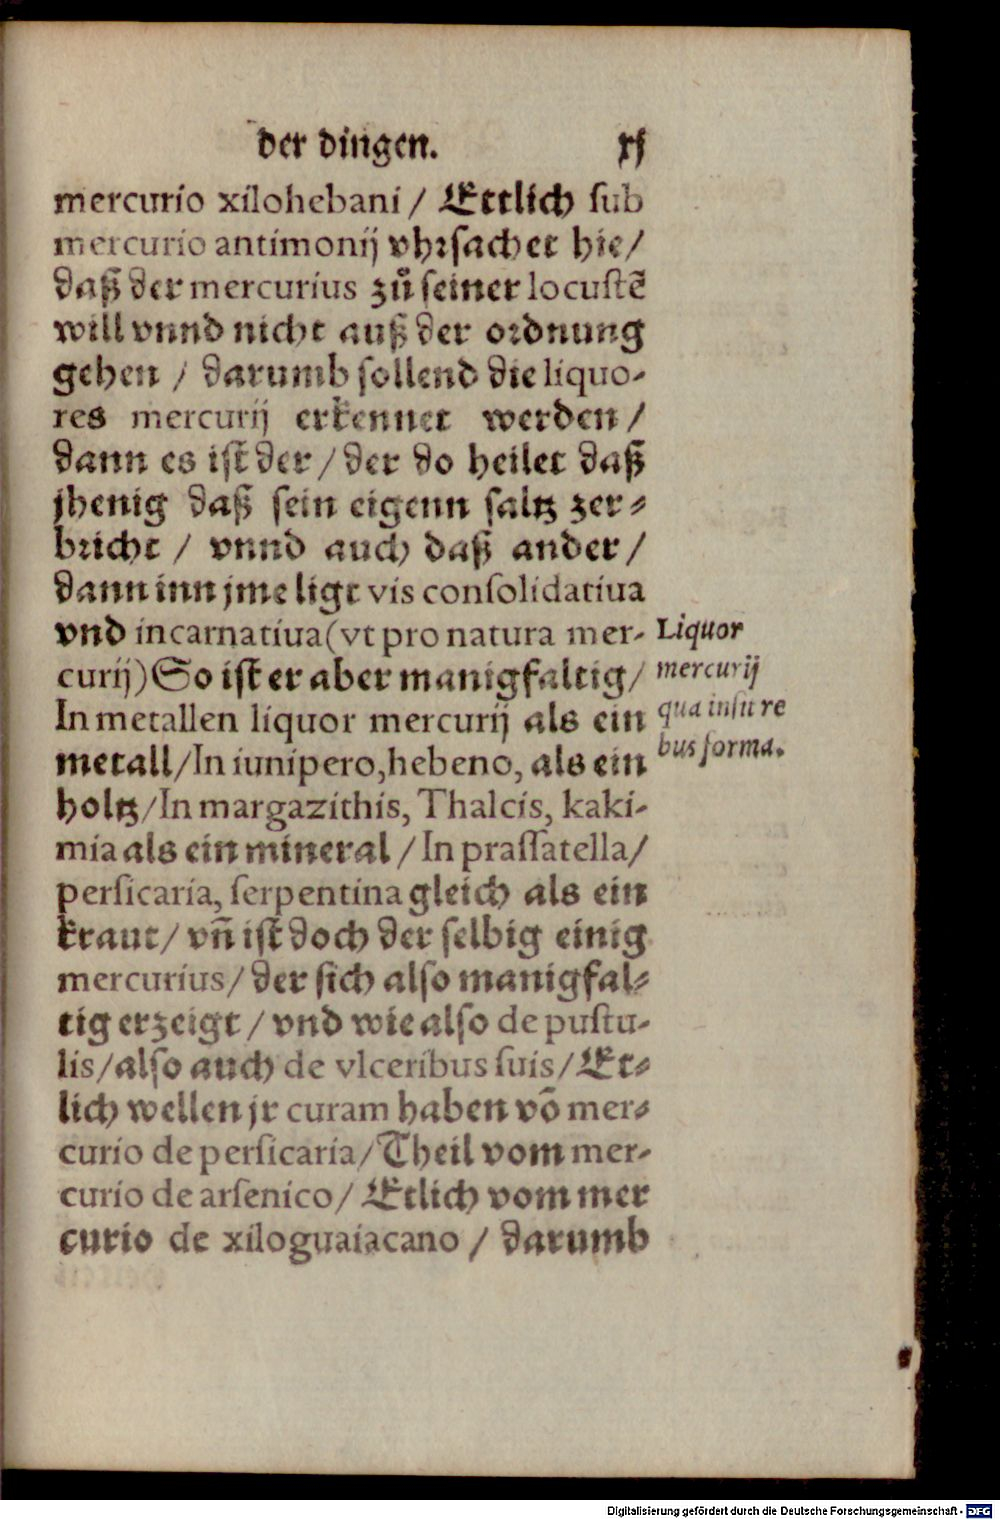 der dingen. xj
mercurio xilohebani / Ettlich sub
mercurio antimonij vhrsachet hie/
daß der mercurius zů seiner locustē
will vnnd nicht auß der ordnung
gehen / darumb sollend die liquo-
res mercurij erkennet werden/
dann es ist der / der do heilet daß
jhenig daß sein eigenn saltz zer-
bricht / vnnd auch daß ander/
dann inn jme ligt vis consolidatiua
vnd incarnatiua (vt pro natura mer-
curij) So ist er aber manigfaltig/
In metallen liquor mercurij als ein
metall/In iunipero,hebeno, als ein
holtz/In margazithis, Thalcis, kaki-
mia als ein mineral / In prassatella/
persicaria, serpentina gleich als ein
kraut/ vñ ist doch der selbig einig
mercurius/ der sich also manigfal-
tig erzeigt / vnd wie also de pustu-
lis/also auch de vlceribus suis/Et-
lich wellen jr curam haben võ mer-
curio de persicaria/Theil vom mer-
curio de arsenico/ Etlich vom mer
curio de xiloguaiacano / darumb
Liquor
mercurij
qua insu re
bus forma.
Digitalisierung gefördert durch die Deutsche Forschungsgemeinschaft - DFG